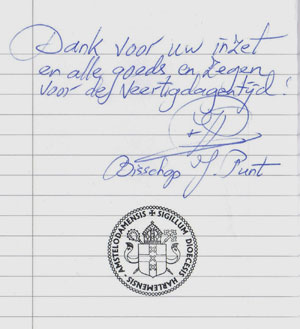 Dank voor uw inzet
en alle goeds en zegen
voor de Veertigdagentijd!
Bisschop J. Punt
SIGILLUM DIOECESIS HARLEMENSIS - AMSTELODAMENSIS